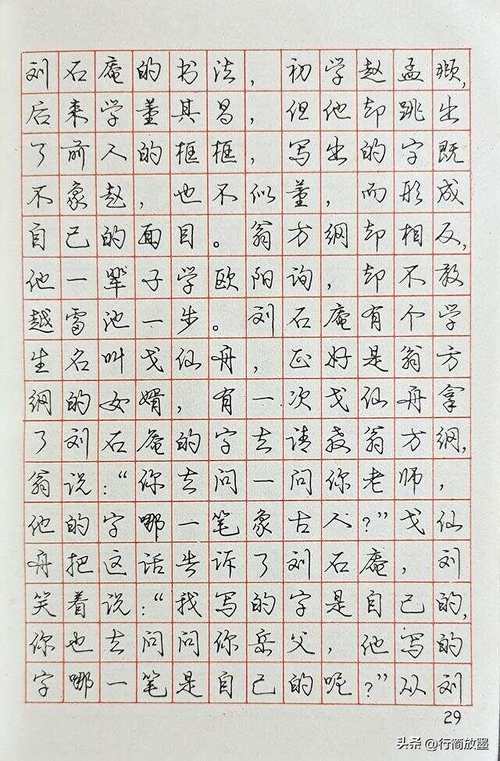 刘石庵的书法，初学赵孟頫，
后来学董其昌，但他却跳出
了前人的框框，写出的字既
不象赵，也不似董，而形成
自己的面目。翁方纲却相反，
他一辈子学欧阳询，却不敢
越雷池一步。刘石庵有个学
生名叫戈仙舟，正好是翁方
纲的女婿，有一次戈仙舟拿
了刘石庵的字去请教翁方纲，
翁说：“你去问一问你老师，
他的字哪一笔象古人？”戈仙
舟把这话告诉了刘石庵，刘
笑着说：“我写的字是自己的，
你也去问问你岳父，他写的
字哪一笔是自己的呢？”从刘
29
头条@行简放墨